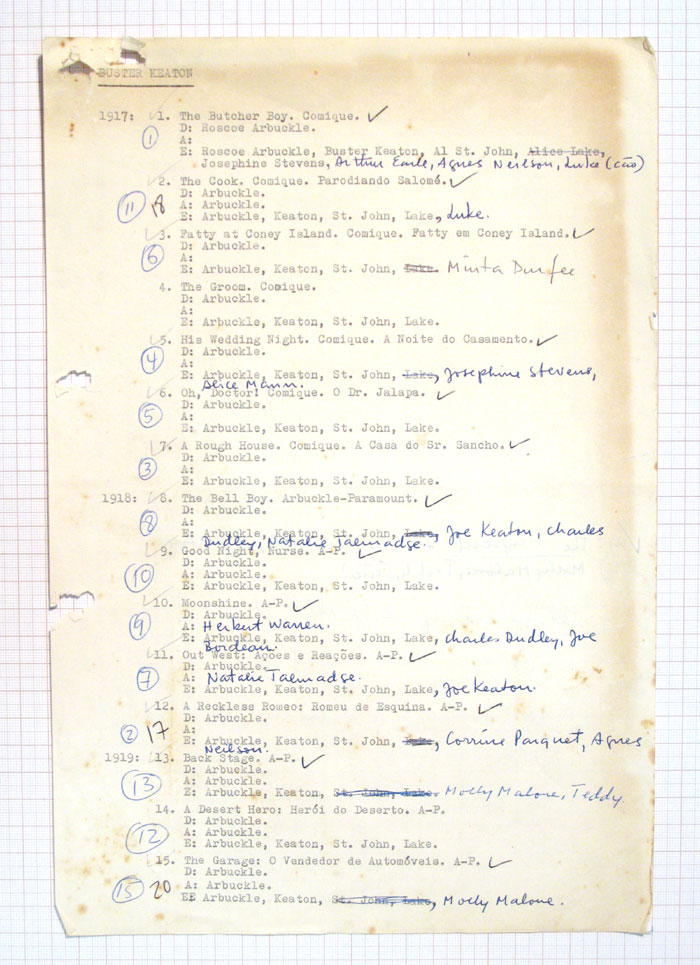 BUSTER KEATON
1917: 1. The Butcher Boy. Comique. ✓
D: Roscoe Arbuckle.
① A:
E: Roscoe Arbuckle, Buster Keaton, Al St. John, Alice Lake,
Josephine Stevens, Arthur Earle, Agnes Neilson, Luke (cão)
2. The Cook. Comique. Parodiando Salomé. ✓
D: Arbuckle.
⑪ 18 A: Arbuckle.
E: Arbuckle, Keaton, St. John, Lake, Luke.
3. Fatty at Coney Island. Comique. Fatty em Coney Island. ✓
D: Arbuckle.
⑥ A:
E: Arbuckle, Keaton, St. John, Lake. Minta Durfee
4. The Groom. Comique.
D: Arbuckle.
A:
E: Arbuckle, Keaton, St. John, Lake.
5. His Wedding Night. Comique. A Noite do Casamento. ✓
D: Arbuckle.
④ A:
E: Arbuckle, Keaton, St. John, Lake, Josephine Stevens,
Alice Mann.
6. Oh, Doctor! Comique. O Dr. Jalapa. ✓
D: Arbuckle.
⑤ A:
E: Arbuckle, Keaton, St. John, Lake.
7. A Rough House. Comique. A Casa do Sr. Sancho. ✓
D: Arbuckle.
③ A:
E: Arbuckle, Keaton, St. John, Lake.
1918: 8. The Bell Boy. Arbuckle-Paramount. ✓
D: Arbuckle.
⑧ A:
E: Arbuckle, Keaton, St. John, Lake, Joe Keaton, Charles
Dudley, Natalie Talmadge.
9. Good Night, Nurse. A-P. ✓
D: Arbuckle.
⑩ A: Arbuckle.
E: Arbuckle, Keaton, St. John, Lake.
10. Moonshine. A-P. ✓
D: Arbuckle.
⑨ A: Herbert Warren.
E: Arbuckle, Keaton, St. John, Lake, Charles Dudley, Joe
Bordeau.
11. Out West: Ações e Reações. A-P. ✓
D: Arbuckle.
⑦ A: Natalie Talmadge.
E: Arbuckle, Keaton, St. John, Lake, Joe Keaton.
12. A Reckless Romeo: Romeu de Esquina. A-P. ✓
D: Arbuckle.
② 17 A:
E: Arbuckle, Keaton, St. John, Lake, Corrine Parquet, Agnes
Neilson.
1919: 13. Back Stage. A-P. ✓
D: Arbuckle.
⑬ A: Arbuckle.
E: Arbuckle, Keaton, St. John, Lake. Molly Malone, Teddy.
14. A Desert Hero: Herói do Deserto. A-P.
D: Arbuckle.
⑫ A: Arbuckle.
E: Arbuckle, Keaton, St. John, Lake.
15. The Garage: O Vendedor de Automóveis. A-P. ✓
D: Arbuckle.
⑮ 20 A: Arbuckle.
E: Arbuckle, Keaton, St. John, Lake, Molly Malone.